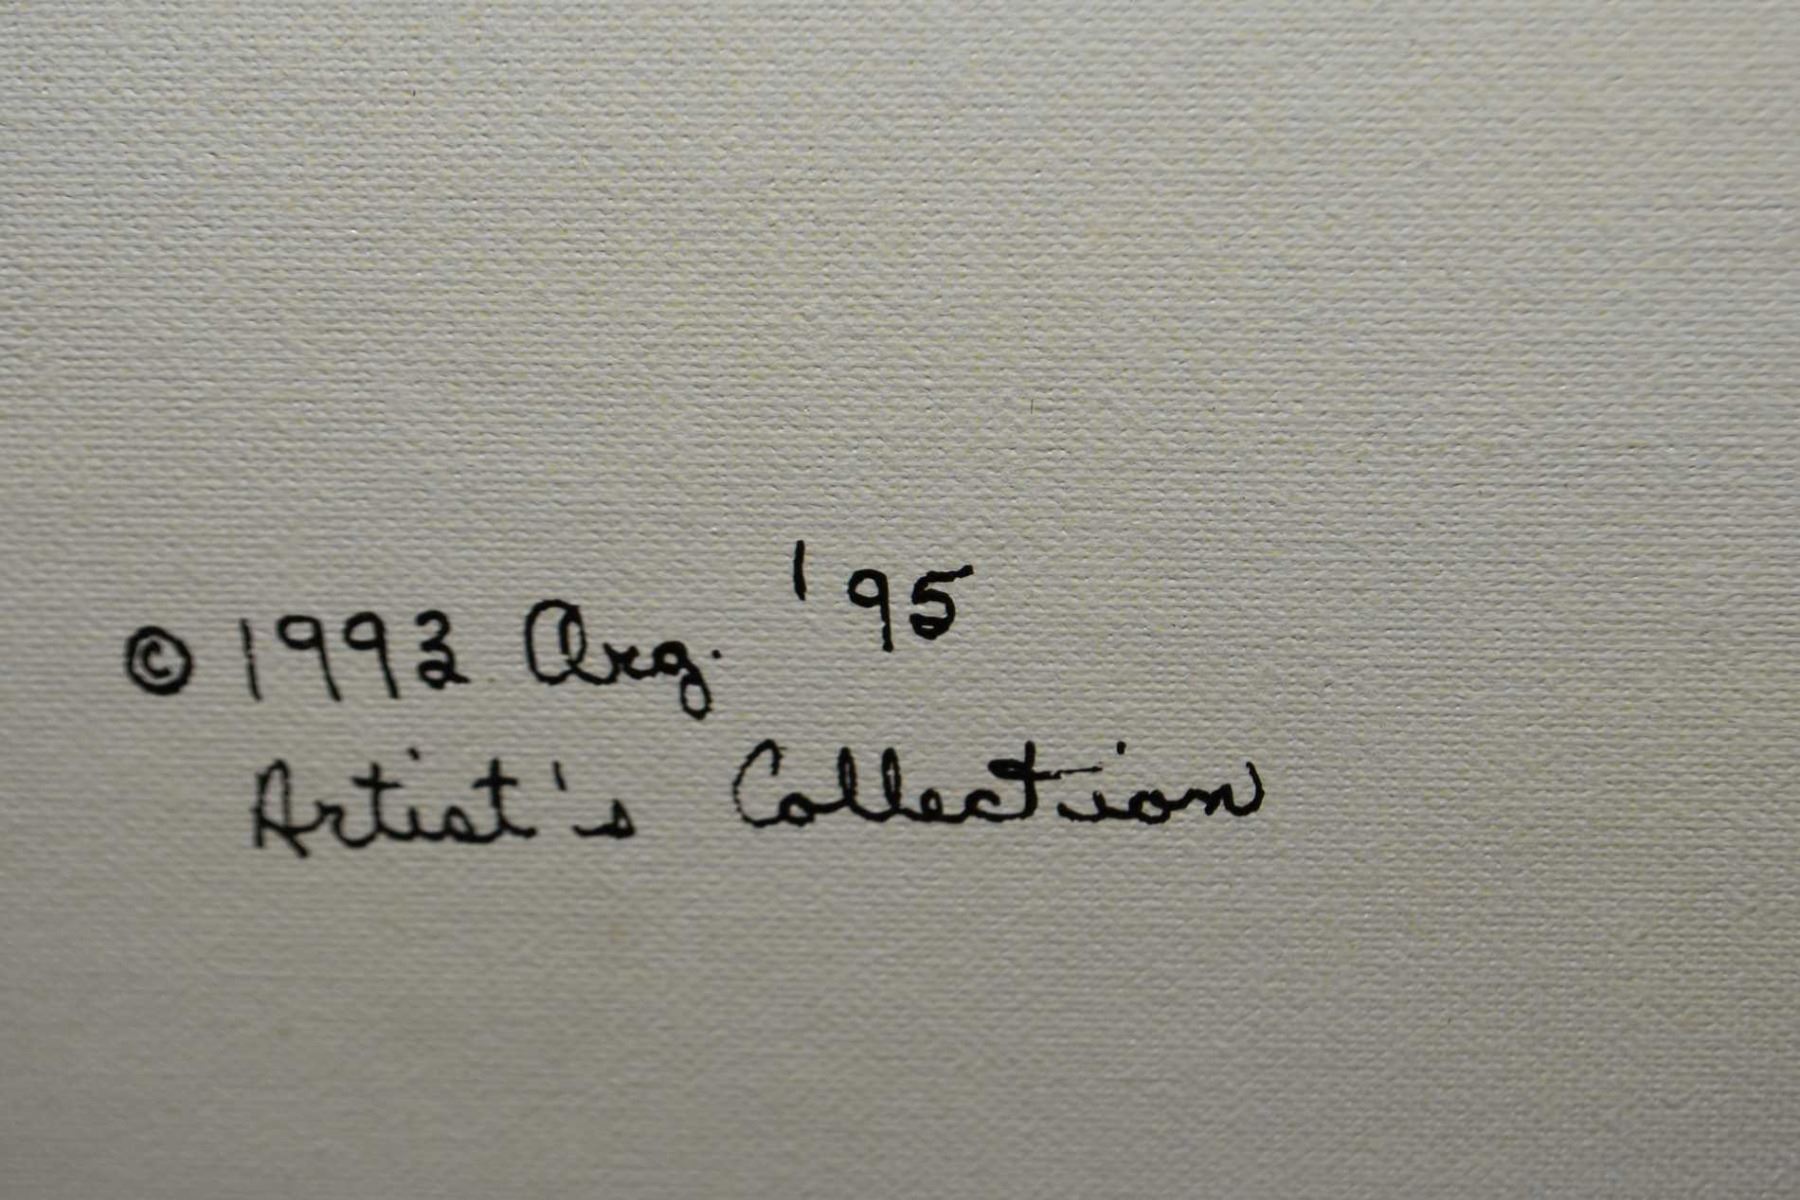 © 1993 Arg. '95
Artist's Collection